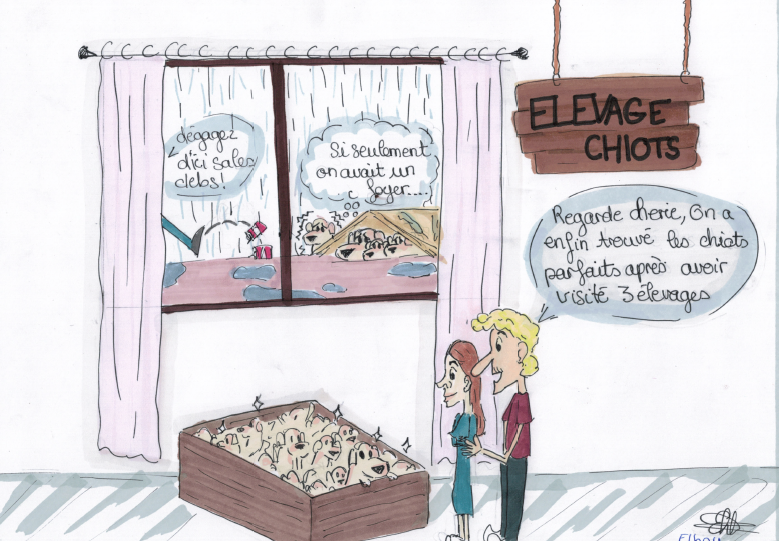 ELEVAGE
CHIOTS
dégagez
d'ici sales
clebs!
Si seulement
on avait un
foyer....
Regarde cherie, On a
enfin trouvé les chiots
parfaits après avoir
visité 3 élevages